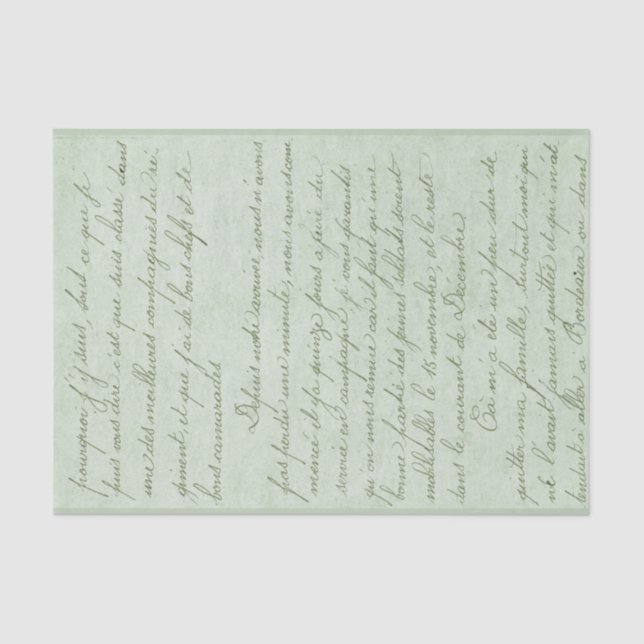 pourquoi j'y suis, tout ce que je
puis vous dire c'est que suis classé dans
une des meilleures compagnies du ré-
giment, et que j'ai de bons chefs et de
bons camarades
Depuis notre arrivée, nous n'avons
pas perdu une minute, nous avons com
mencé et ja quinze jours a faire du
service en campagne je vous garantis
qu'on nous remue car il faut qu'une
bonne partie des jeunes soldats soient
mobilisables le 15 novembre, et le reste
dans le courant de Decembre.
Cà m'a été un peu dur de
quitter ma famille, surtout moi qui
ne l'avait jamais quittée et qui m'at
tendait à aller à Bordeaux ou dans